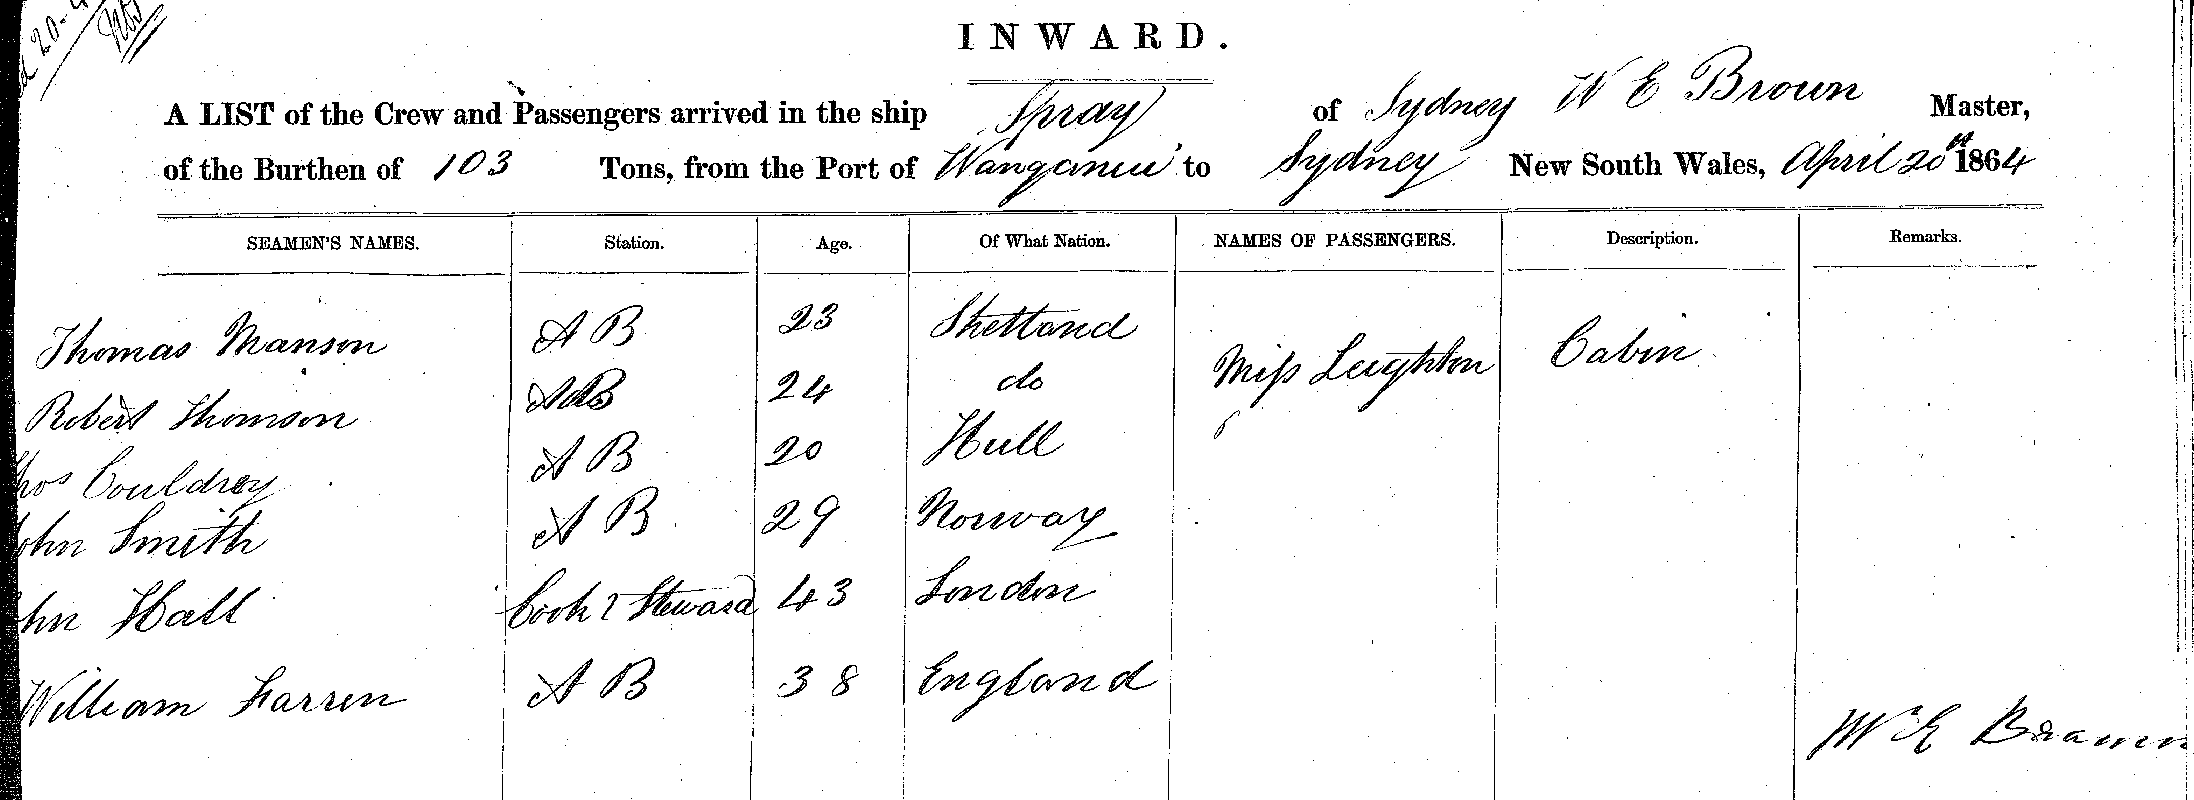 20-4
INWARD.
A LIST of the Crew and Passengers arrived in the ship Spray of Sydney W E Brown Master,
of the Burthen of 103 Tons, from the Port of Wanganui to Sydney New South Wales, April 20th 1864
SEAMEN'S NAMES. Station. Age. Of What Nation. NAMES OF PASSENGERS. Description. Remarks.
Thomas Manson A B 23 Shetland Miss Leighton Cabin
Robert Thomson AB 24 do
Thos Couldrey A B 20 Hull
John Smith A B 29 Norway
John Hall Cook & Steward 43 London
William Farren A B 38 England
W E Brown